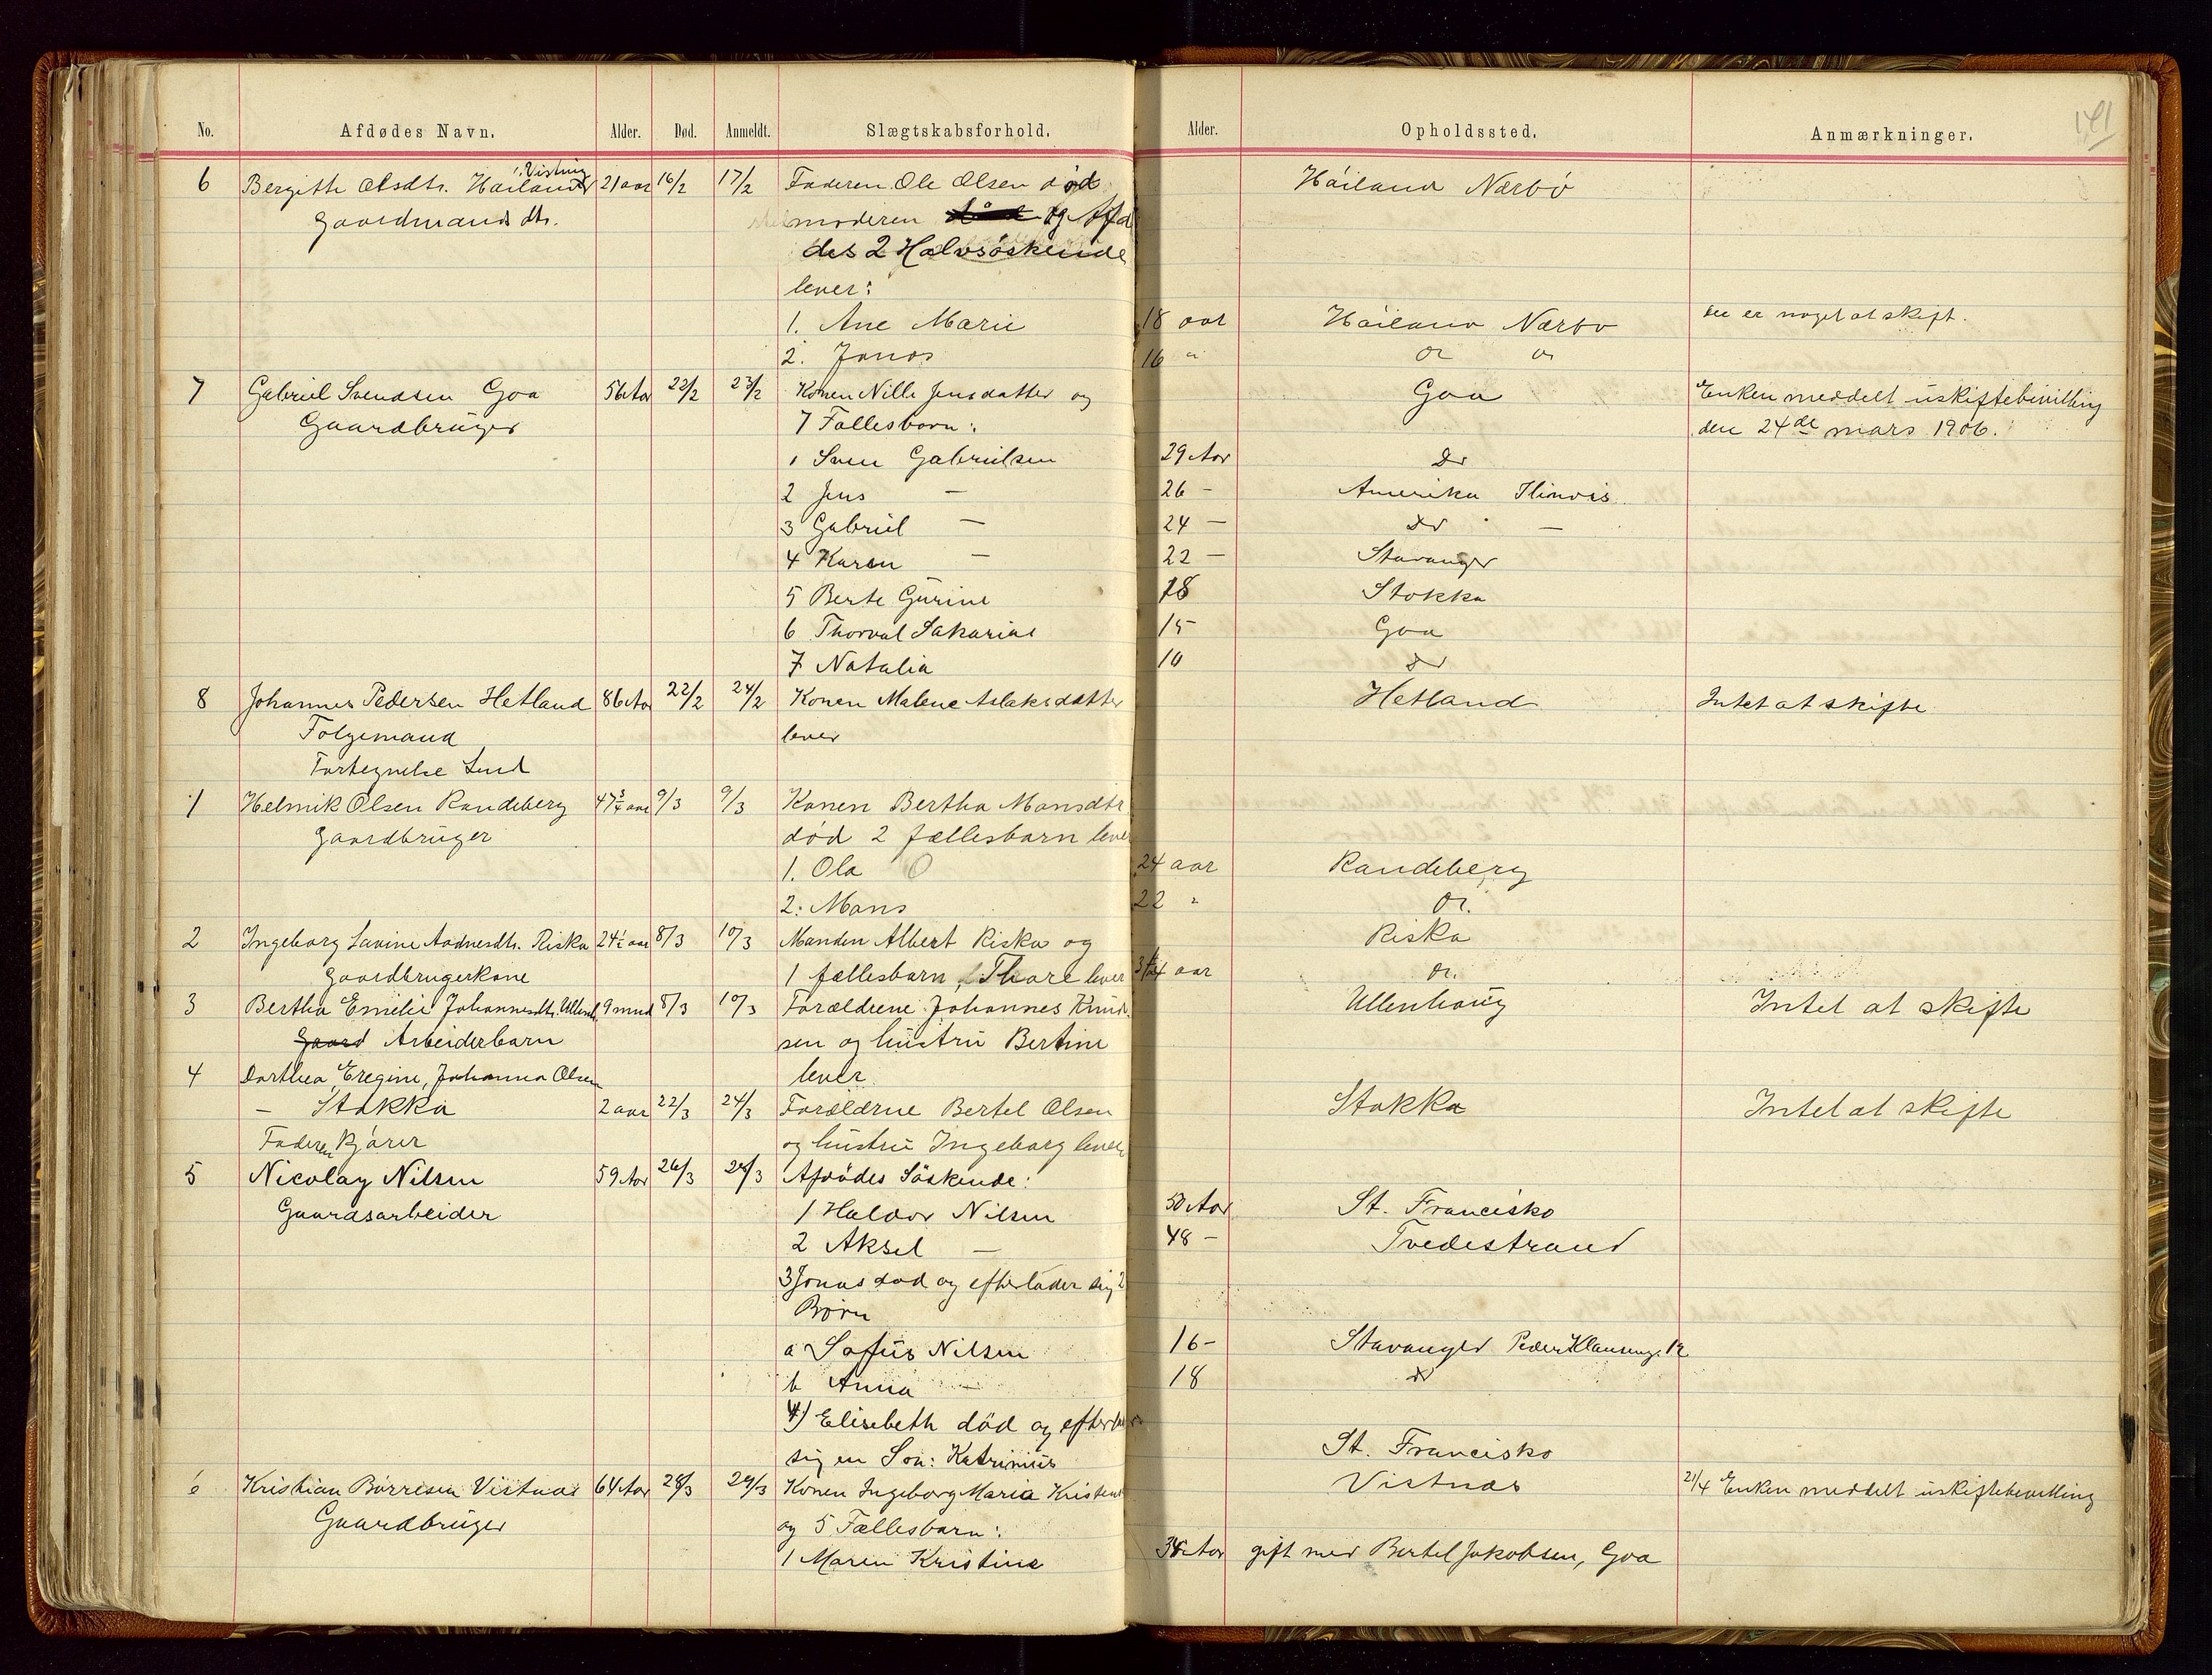 141
No. Afdødes Navn. Alder. Død. Anmeldt. Slægtskabsforhold. Alder. Opholdssted. Anmærkninger.
i Vistnæs
6 Bergithe Olsdtr. Håiland 21 aar 16/2 17/2 Faderen Ole Olsen død Håiland Nærbö
Gaardmands dtr. moderen og Afdø
des 2 Halvsøskende
lever:
1. Ane Marie 18 aar Håiland Nærbö der er noget at skift.
2. Jonas 16 " do do
7 Gabriel Svendsen Goa 56 Aar 22/2 23/2 Konen Nille Jensdatter og Goa Enken meddelt uskiftebevilling
Gaardbruger 7 Fællesbarn: den 24de mars 1906.
1 Sven Gabrielsen 29 Aar do
2 Jens — 26 — Amerika Ilinois
3 Gabriel — 24 — do —
4 Karen — 22 — Stavanger
5 Berte Gurine 18 Stokka
6 Thorval Sakarias 15 Goa
7 Natalia 10 do
8 Johannes Pedersen Hetland 86 Aar 22/2 24/2 Konen Malene Aslaksdatter Hetland Intet at skifte
Folgemand lever
Fortegnelse Send
1 Helmik Olsen Randeberg 47 3/4 aar 9/3 9/3 Konen Bertha Mansdtr
Gaardbruger død 2 fællesbarn lever
1. Ola 24 aar Randeberg
2. Mans 22 " do.
2 Ingeborg Lavine Aadnesdtr. Riska 24 1/2 aar 8/3 10/3 Manden Albert Riska og Riska
Gaardbrugerkone 1 fællesbarn, Thore lever 3/4 aar do.
3 Bertha Emelie Johannesdtr. Ullenh. 9 mnd 8/3 10/3 Forældrene Johannes Knud- Ullenhaug Intet at skifte
Gaard Arbeiderbarn sen og hustru Bertine
4 Dorthea Eregine, Johanna Olsen lever
— Stokka 2 aar 22/3 24/3 Forældrne Bertel Olsen Stokka Intet at skifte
Faderen Kjører og hustru Ingeborg lever
5 Nicolay Nilsen 59 Aar 26/3 28/3 Afdödes Söskende:
Gaardsarbeider 1 Haldor Nilsen 50 Aar St. Francisko
2 Aksel — 48 — Tvedestrand
3 Jonas död og efterlader sig 2
Börn
a Sofus Nilsen 16 — Stavanger Peder Klauseng. 12
b Anna — 18 do
4) Elisebeth död og efterlader
sig en Sön: Katrinius St. Francisko
6 Kristian Börresen Vistnæs 64 Aar 28/3 29/3 Konen Ingeborg Maria Kristens Vistnæs 21/4 Enken meddelt uskiftebevilling
Gaardbruger og 5 Fællesbarn:
1 Maren Kristine 38 Aar gift med Bertel Jakobsen, Goa